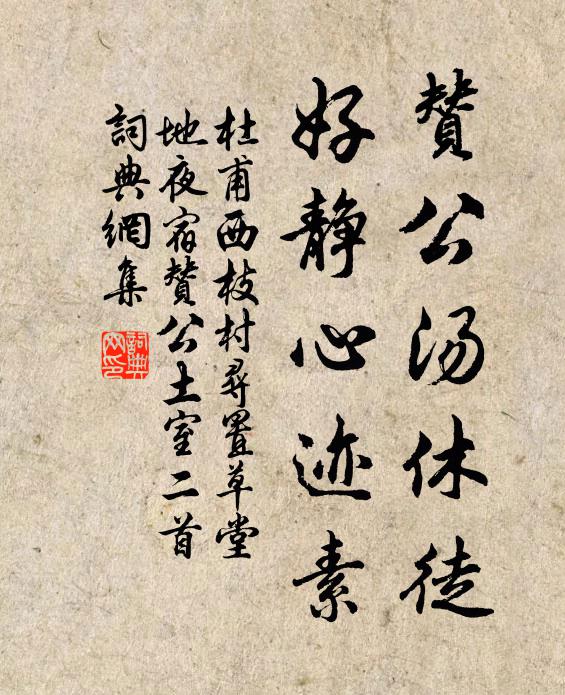 賛公湯休徒
好静心迹素
杜甫西枝村尋置草堂
地夜宿賛公土室二首
詞典網集
詞典
网印